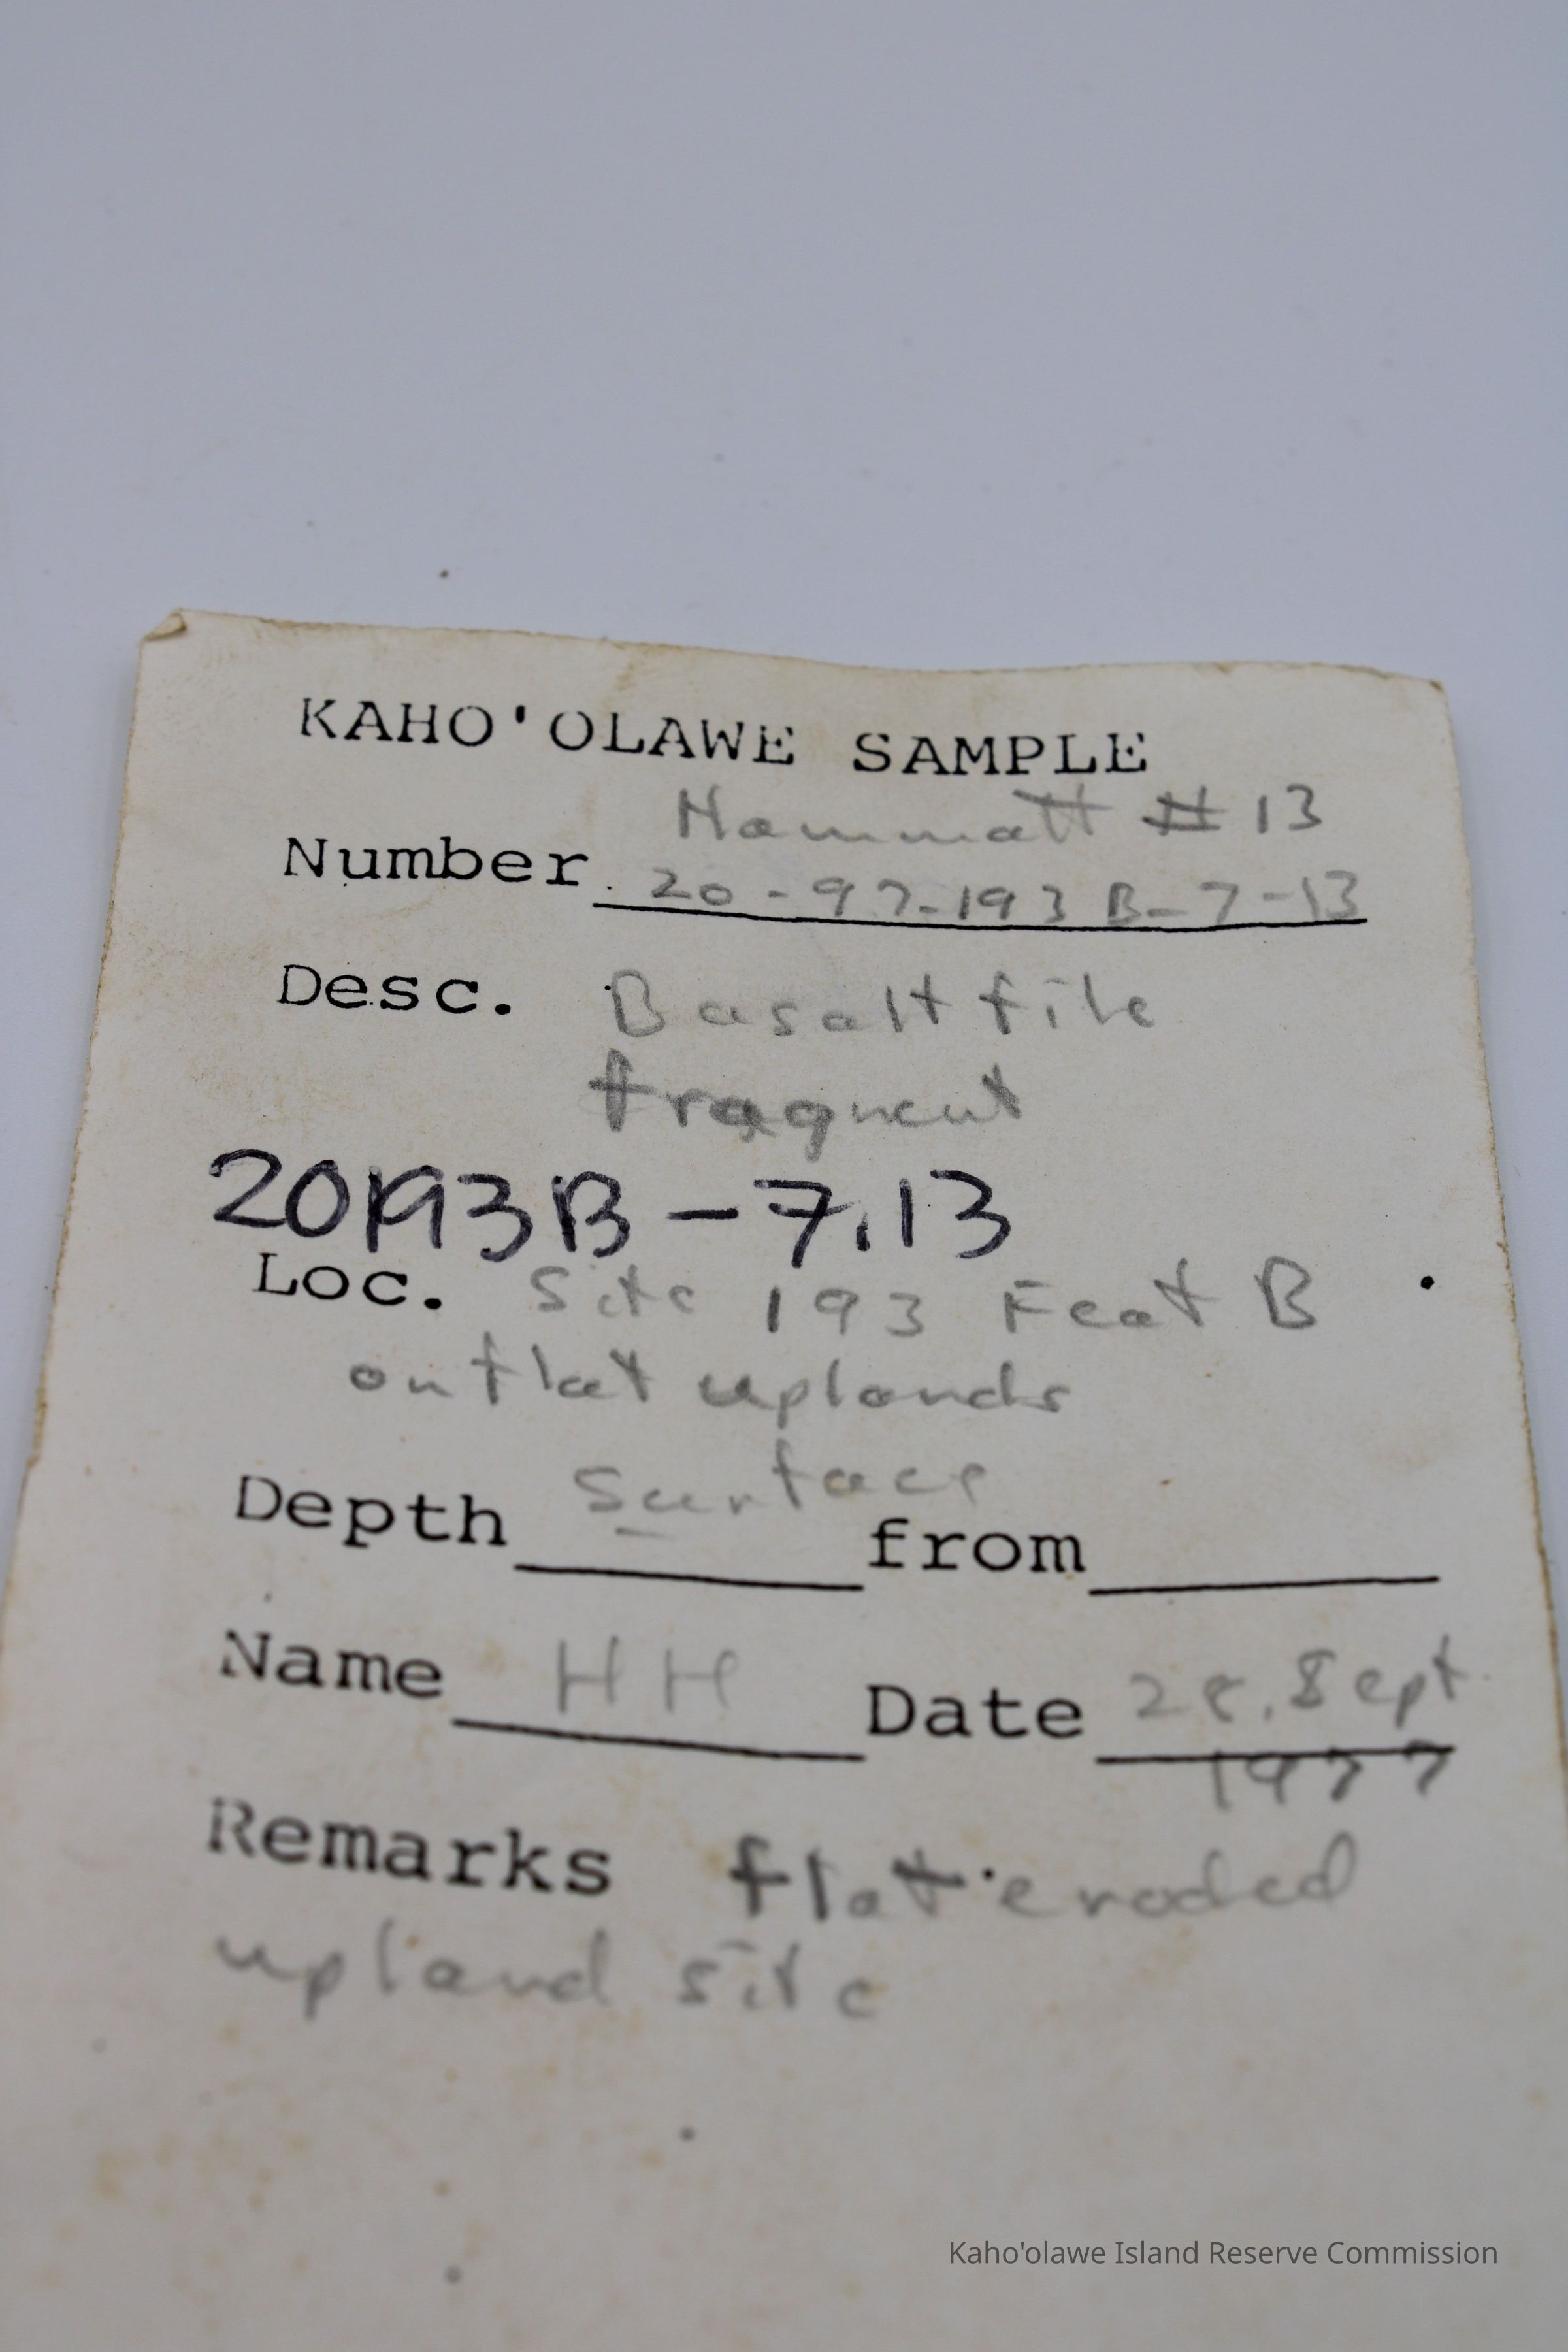 KAHO'OLAWE SAMPLE
Hammatt # 13
Number 20-97-193 B-7-13
Desc. Basalt file
fragment
20193B-7.13
Loc. Site 193 Feat B
on flat uplands
Depth Surface from
Name HH Date 28. Sept
1977
Remarks flat eroded
upland site
Kaho'olawe Island Reserve Commission